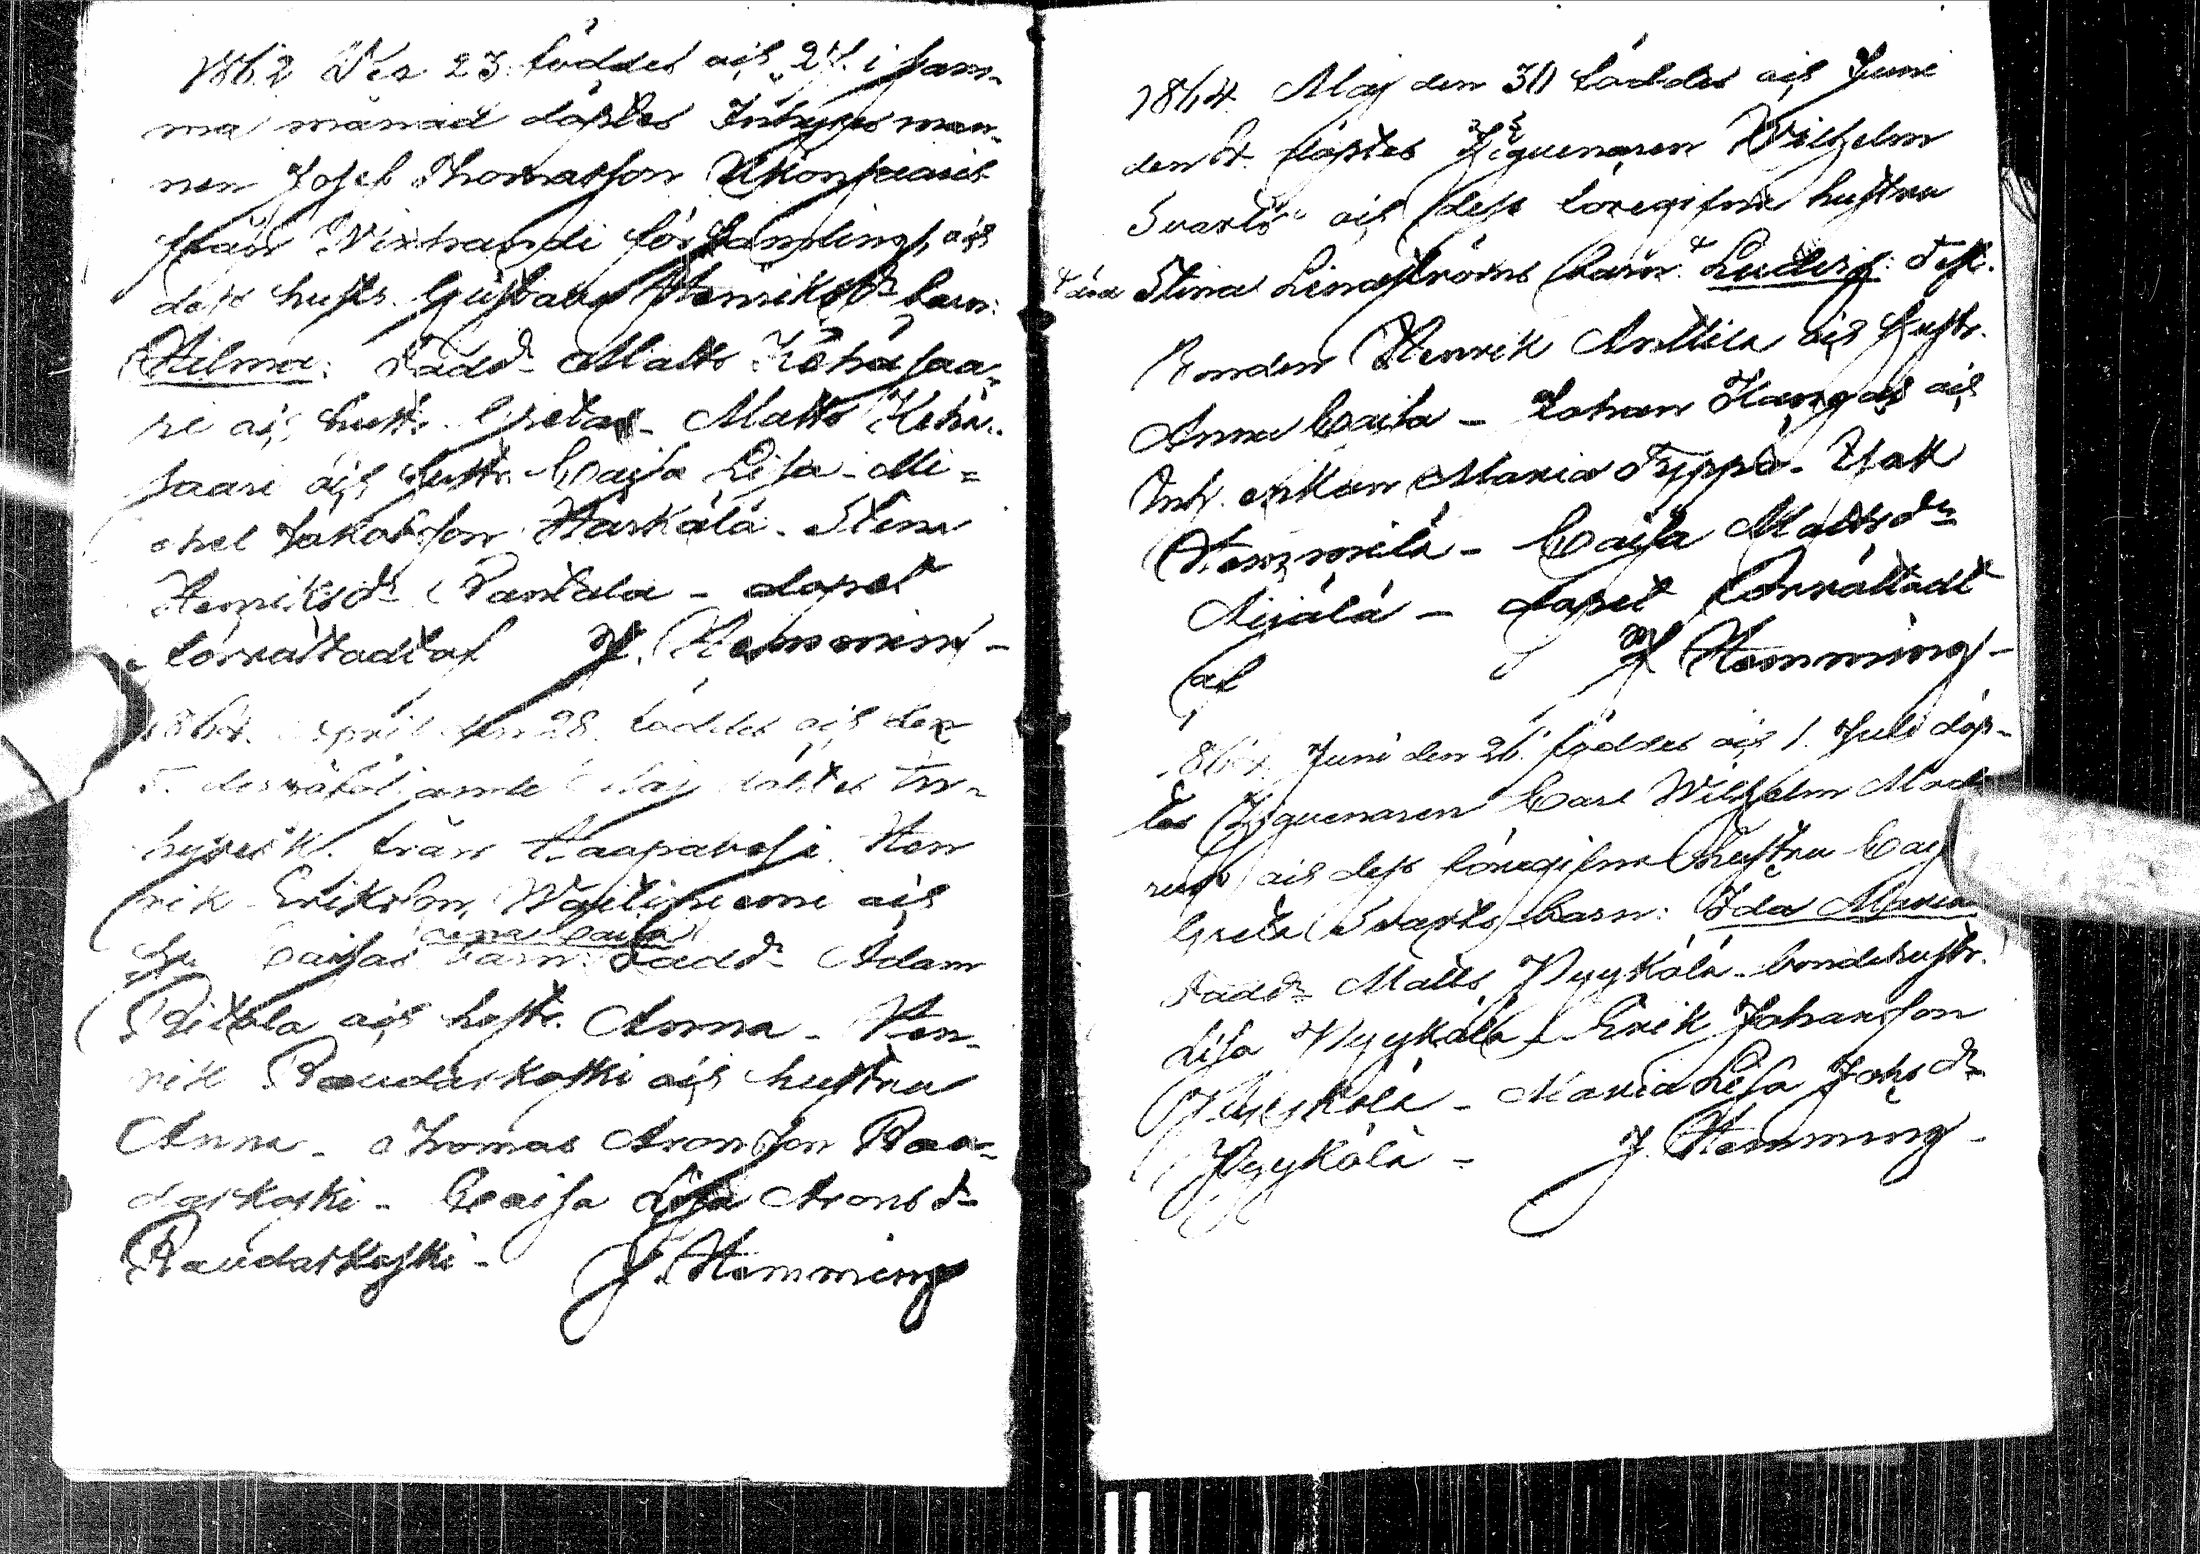 1862 Dec 23. föddes och 27. i sam-
ma månad döptes Inhyses man-
nen Josef Thomasson
från församling och
dess hustr. Gustava Henriksdr barn:
Hilma: Fadd. Matts Kehäsaa-
ri och hustr. Greta - Matts Kehä-
saari och hustr. Caisa Lisa - Mi-
chel Jakobsson Härkälä - Stina
Henriksdr Pantala - dopet
förrättadt af J. Hemming -
1864. April den 28. föddes och den
5. derpåföljande Maj döptes In-
hyses k. från Haapavesi Hen
rik Eriksson, och
Anna Caisa
hu Caisas barn: Fadd. Adam
Ritola och hustr. Anna - Hen-
rik Raudaskoski och hustru
Anna - Thomas Aronsson Rau-
daskoski - Caisa Lisa Aronsdr
Raudaskoski - J. Hemming
1864. Maj den 30 föddes och Juni
den 4. döptes Ziguenaren Wilhelm
Svarts och dess föregifna hustru
Stina Lindströms barn: Ludvig: Test.
Bonden Henrik Anttila och hustr.
Anna Caisa - Johan Kangas och
Inh. enkan Maria Typpö - Isak
Hemmilä - Caisa Mattsdr
- dopet förrättadt
af J Hemming -
1864. Juni den 26. föddes och 1. Juli döp-
tes Ziguenaren Carl Wilhelm
och dess föregifna hustru Caj
Greta Svarts barn: Ida Maria
Fadd. Matts Pyykölä - bondehustr.
Lisa Pyykölä - Erik Johansson
Pyykölä - Maria Lisa Johsdr
Pyykölä - J. Hemming -